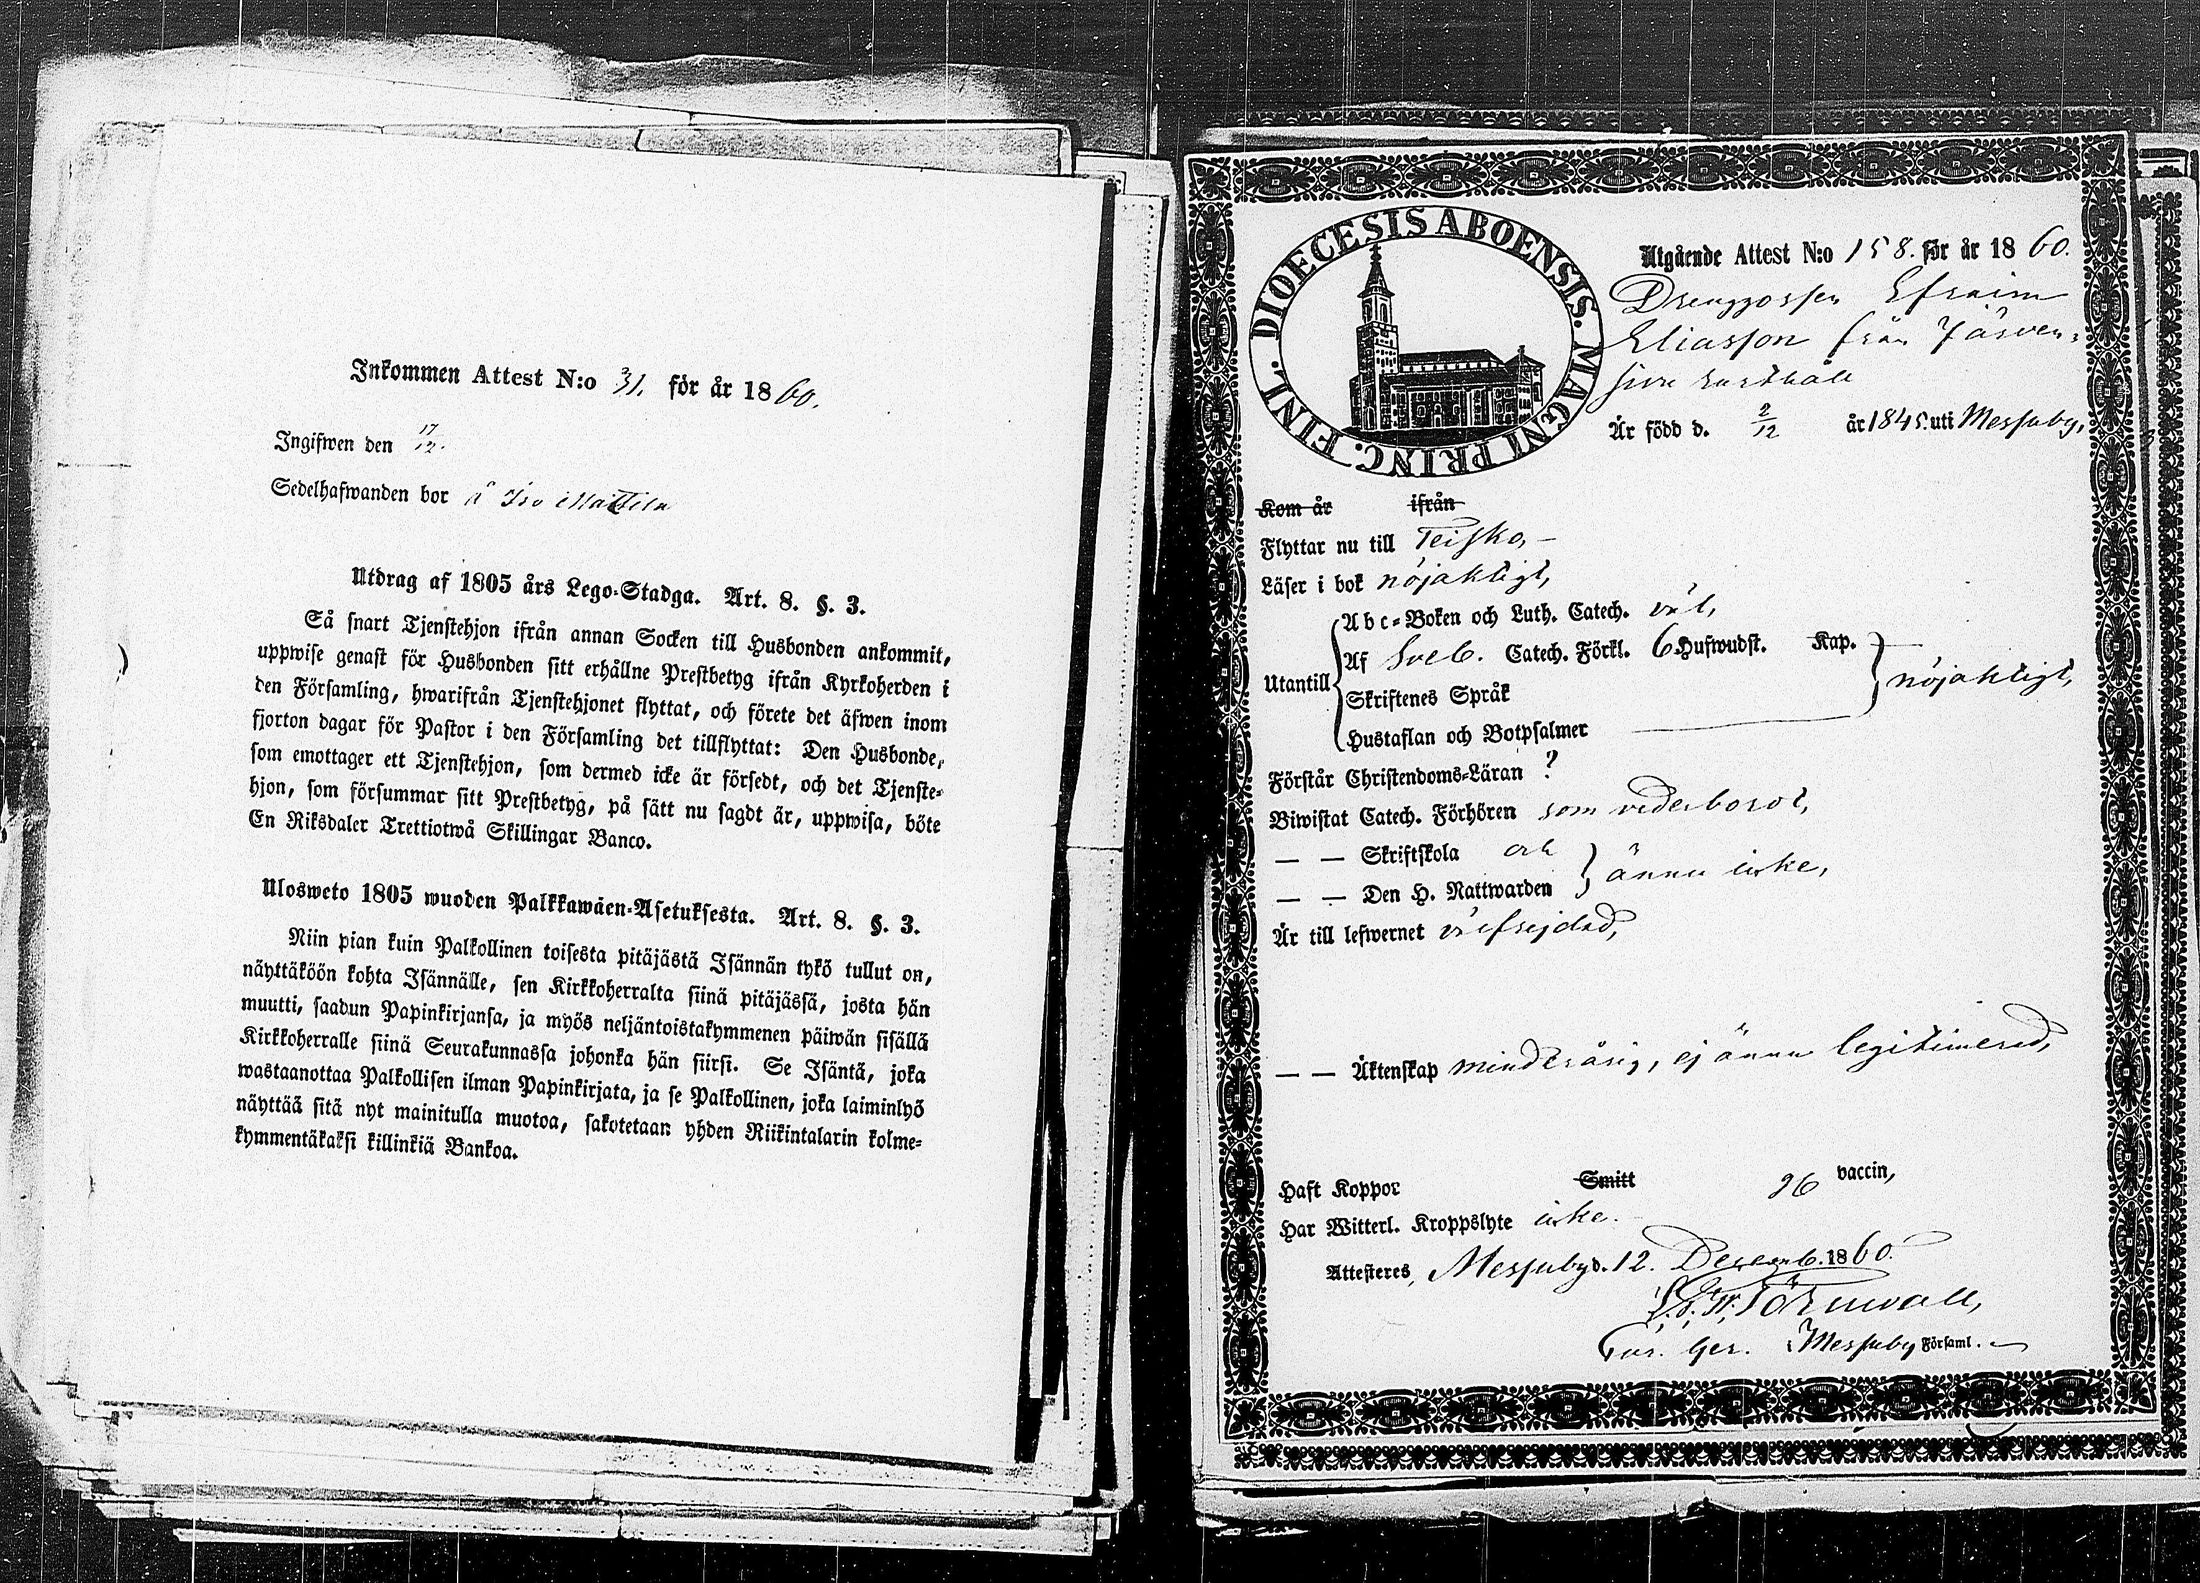 Inkommen Attest N:o 31. för år 1860.
Ingifwen den 17/12.
Sedelhafwanden bor å Iso Mattila
Utdrag af 1805 års Lego-Stadga. Art. 8. §. 3.
Så snart Tjenstehjon ifrån annan Socken till Husbonden ankommit,
uppwise genast för Husbonden sitt erhållne Prestbetyg ifrån Kyrkoherden i
den Församling, hwarifrån Tjenstehjonet flyttat, och förete det äfwen inom
fjorton dagar för Pastor i den Församling det tillflyttat: Den Husbonde,
som emottager ett Tjenstehjon, som dermed icke är försedt, och det Tjenste-
hjon, som försummar sitt Prestbetyg, på sätt nu sagdt är, uppwisa, böte
En Riksdaler Trettiotwå Skillingar Banco.
Ulosweto 1805 wuoden Palkkawäen-Asetuksesta. Art. 8. §. 3.
Niin pian kuin Palkollinen toisesta pitäjästä Isännän tykö tullut on,
näyttäköön kohta Isännälle, sen Kirkkoherralta siinä pitäjässä, josta hän
muutti, saadun Papinkirjansa, ja myös neljäntoistakymmenen päiwän sisällä
Kirkkoherralle siinä Seurakunnassa johonka hän siirsi. Se Isäntä, joka
wastaanottaa Palkollisen ilman Papinkirjata, ja se Palkollinen, joka laiminlyö
näyttää sitä nyt mainitulla muotoa, sakotetaan yhden Riikintalarin kolme-
kymmentäkaksi killinkiä Bankoa.
DIOECESIS ABOENSIS. MAGNI PRINC. FINL.
Utgående Attest N:o 158. för år 1860.
Drenggossen Efraim
Eliasson från Järven-
sivu rusthåll
Är född d. 2/12 år 1845. uti Messuby,
Kom år ifrån
Flyttar nu till Teisko,
Läser i bok nöjaktigt,
Abc-Boken och Luth. Catech. väl,
Af Sveb. Catech. Förkl. 6 Hufwudst. Kap.
Utantill
Skriftenes Språk
nöjaktigt,
Hustaflan och Botpsalmer
Förstår Christendoms-Läran ?
Biwistat Catech. Förhören som vederborot,
— — Skriftskola och
— — Den H. Nattwarden
ännu icke,
Är till lefwernet välfrejdad,
— — Äktenskap minderårig, ej ännu legitimerad,
Haft Koppor Smitt vaccin,
Har Witterl. Kroppslyte icke.
Attesteres, Messuby d. 12. Decemb. 1860.
Törnwall,
Messuby Församl.